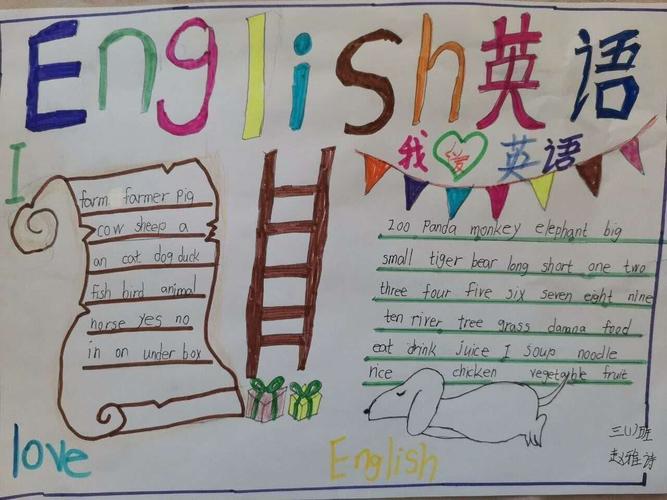 English英语
我爱英语
I
farm farmer pig
cow sheep a
an cat dog duck
fish bird animal
horse yes no
in on under box
zoo panda monkey elephant big
small tiger bear long short one two
three four five six seven eight nine
ten river tree grass danana food
eat drink juice I soup noodle
rice chicken vegetable fruit
love
English
三(1)班
赵雅诗